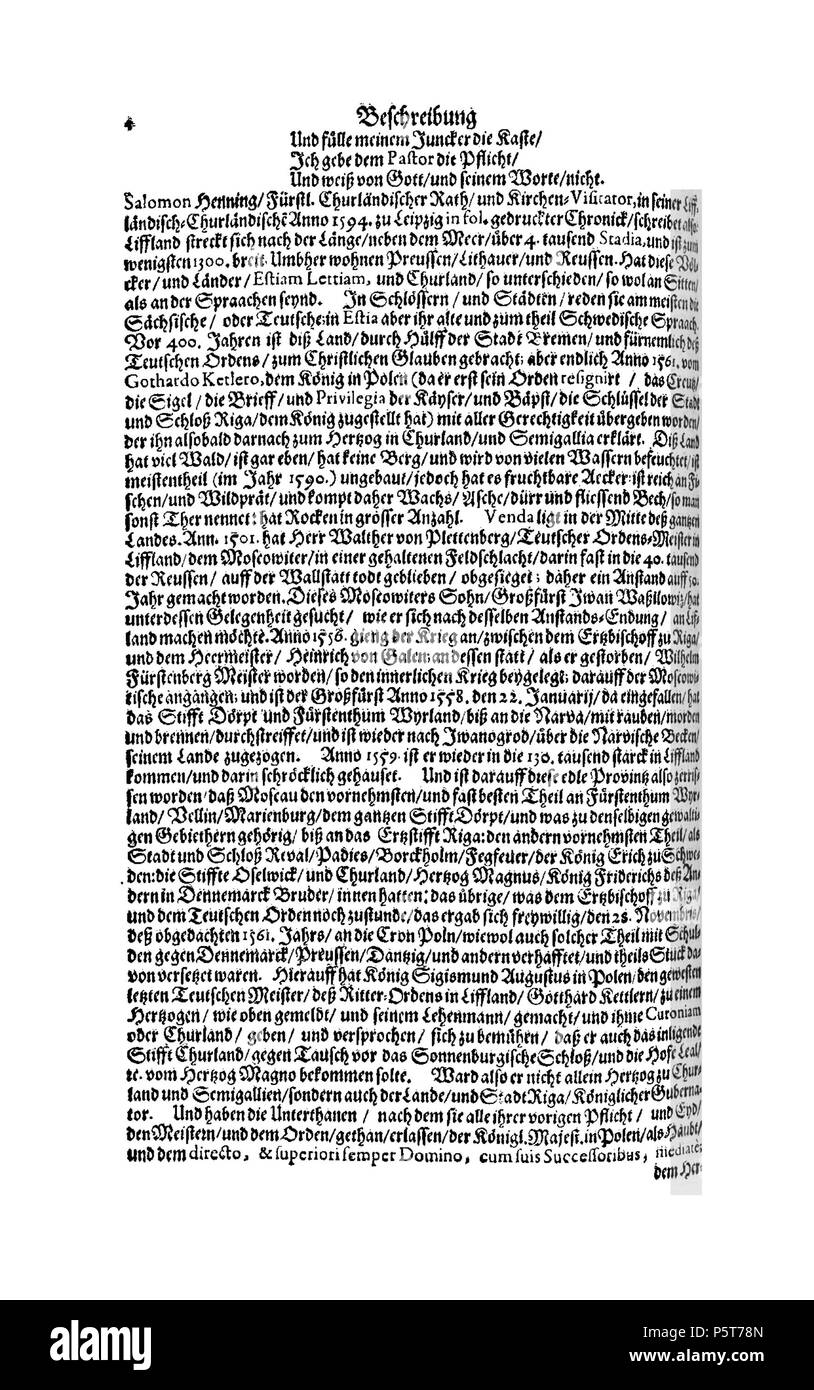 4
Beschreibung
Und fülle meinem Juncker die Kaste/
Ich gebe dem Pastor die Pflicht/
Und weiß von Gott/und seinem Worte/nicht.
Salomon Henning/Fürstl. Churländischer Rath/und Kirchen-Visitator, in seiner Liff-
ländisch-Churländischẽ Anno 1594. zu Leipzig in fol. gedruckter Chronick/schreibet also:
Liffland streckt sich nach der Länge/neben dem Meer/über 4. tausend Stadia, und ist zum
wenigsten 1300. breit. Umbher wohnen Preussen/Lithauer/und Reussen. Hat diese Völ-
cker/und Länder/Estiam Lettiam, und Churland/so unterschieden/so wol an Sitten/
als an der Spraachen seynd. In Schlössern/und Städten/reden sie am meisten die
Sächsische/ oder Teutsche: in Estia aber ihr alte und zum theil Schwedische Spraach.
Vor 400. Jahren ist diß Land/durch Hülff der Stadt Bremen/und fürnemlich deß
Teutschen Ordens/zum Christlichen Glauben gebracht; aber endlich Anno 1561. vom
Gothardo Ketlero, dem König in Polen (da er erst sein Orden resignirt / das Creutz/
die Sigel/die Brieff/und Privilegia der Käyser/und Bäpst/die Schlüssel der Stadt
und Schloß Riga/dem König zugestellt hat) mit aller Gerechtigkeit übergeben worden/
der ihn alsobald darnach zum Hertzog in Churland/und Semigallia erklärt. Diß Land
hat viel Wald/ist gar eben/hat keine Berg/und wird von vielen Wassern befeuchtet/ist
meistentheil (im Jahr 1590.) ungebaut/jedoch hat es fruchtbare Aecker: ist reich an Fi-
schen/und Wildprät/und kompt daher Wachs/Asche/dürr und fliessend Bech/so man
sonst Ther nennet: hat Rocken in grösser Anzahl. Venda ligt in der Mitte deß gantzen
Landes. Ann. 1501. hat Herr Walther von Plettenberg/Teutscher Ordens-Meister in
Liffland/dem Moscowiter/in einer gehaltenen Feldschlacht/darin fast in die 40. tausend
der Reussen/ auff der Wallstatt todt geblieben/ obgesieget; daher ein Anstand auff 50.
Jahr gemacht worden. Dieses Moscowiters Sohn/Großfürst Iwan Waßilowitz/hat
unterdessen Gelegenheit gesucht/ wie er sich nach desselben Anstands-Endung/ an Lif-
land machen möchte. Anno 1556. gieng der Krieg an/zwischen dem Ertzbischoff zu Riga/
und dem Heermeister/ Heinrich von Galen; an dessen statt/als er gestorben/ Wilhelm
Fürstenberg Meister worden/so den innerlichen Krieg beygelegt; darauff der Moscowi-
tische angangen; und ist der Großfürst Anno 1558. den 22. Januarij/da eingefallen/hat
das Stifft Dörpt und Fürstenthum Wyrland/biß an die Narva/mit rauben/morden
und brennen/durchstreiffet/und ist wieder nach Iwanogrod/über die Narvische Becken/
seinem Lande zugezogen. Anno 1559. ist er wieder in die 130. tausend starck in Liffland
kommen/und darin schröcklich gehauset. Und ist darauff diese edle Provintz also zerris-
sen worden/daß Moscau den vornehmsten/und fast besten Theil an Fürstenthum Wyr-
land/ Vellin/Marienburg/dem gantzen Stifft Dörpt/und was zu denselbigen gewalti-
gen Gebiethern gehörig/ biß an das Ertzstifft Riga: den andern vornehmsten Theil/als
Stadt und Schloß Reval/Padies/Borckholm/Fegfeuer/der König Erich zu Schwe-
den: die Stiffte Oselwick/und Churland/Hertzog Magnus/König Friderichs deß An-
dern in Dennemarck Bruder/innen hatten: das übrige/was dem Ertzbischoff zu Riga/
und dem Teutschen Orden noch zustunde/das ergab sich freywillig/den 28. Novembris/
deß obgedachten 1561. Jahrs/an die Cron Poln/wiewol auch solcher Theil mit Schul-
den gegen Dennemarck/Preussen/Dantzig/und andern verhafftet/und theils Stück da-
von versetzet waren. Hierauff hat König Sigismund Augustus in Polen/den gewesten
letzten Teutschen Meister/deß Ritter-Ordens in Liffland/Gotthard Kettlern/zu einem
Hertzogen/ wie oben gemeldt/ und seinem Lehenmann/gemacht/und ihme Curoniam
oder Churland/ geben/ und versprochen/ sich zu bemühen/ daß er auch das inligende
Stifft Churland/gegen Tausch vor das Sonnenburgische Schloß/und die Hofe Leal/
etc. vom Hertzog Magno bekommen solte. Ward also er nicht allein Hertzog zu Chur-
land und Semigallien/sondern auch der Lande/und Stadt Riga/Königlicher Guberna-
tor. Und haben die Unterthanen/ nach dem sie alle ihrer vorigen Pflicht/ und Eyd/
den Meistern/und dem Orden/gethan/erlassen/der Königl. Majest. in Polen/als Haubt/
und dem directo, & superiori semper Domino, cum suis Successoribus, mediatè;
dem Her-
alamy
alamy
Image ID: P5T78N
www.alamy.com